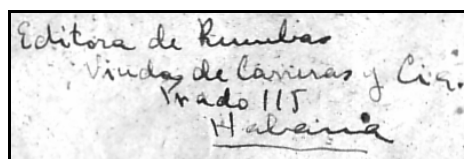 Editora de Rumbas
Viuda de Carreras y Cia.
Prado 115
Habana